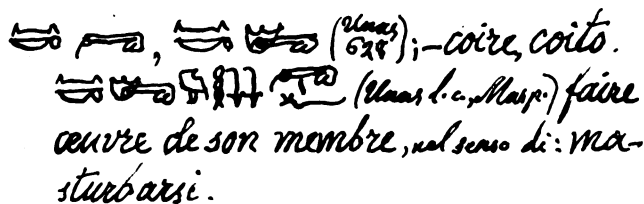 , (Unas 628);—coire, coito.
(Unas l. c., Masp.) faire
œuvre de son membre, nel senso di: ma-
sturbarsi.